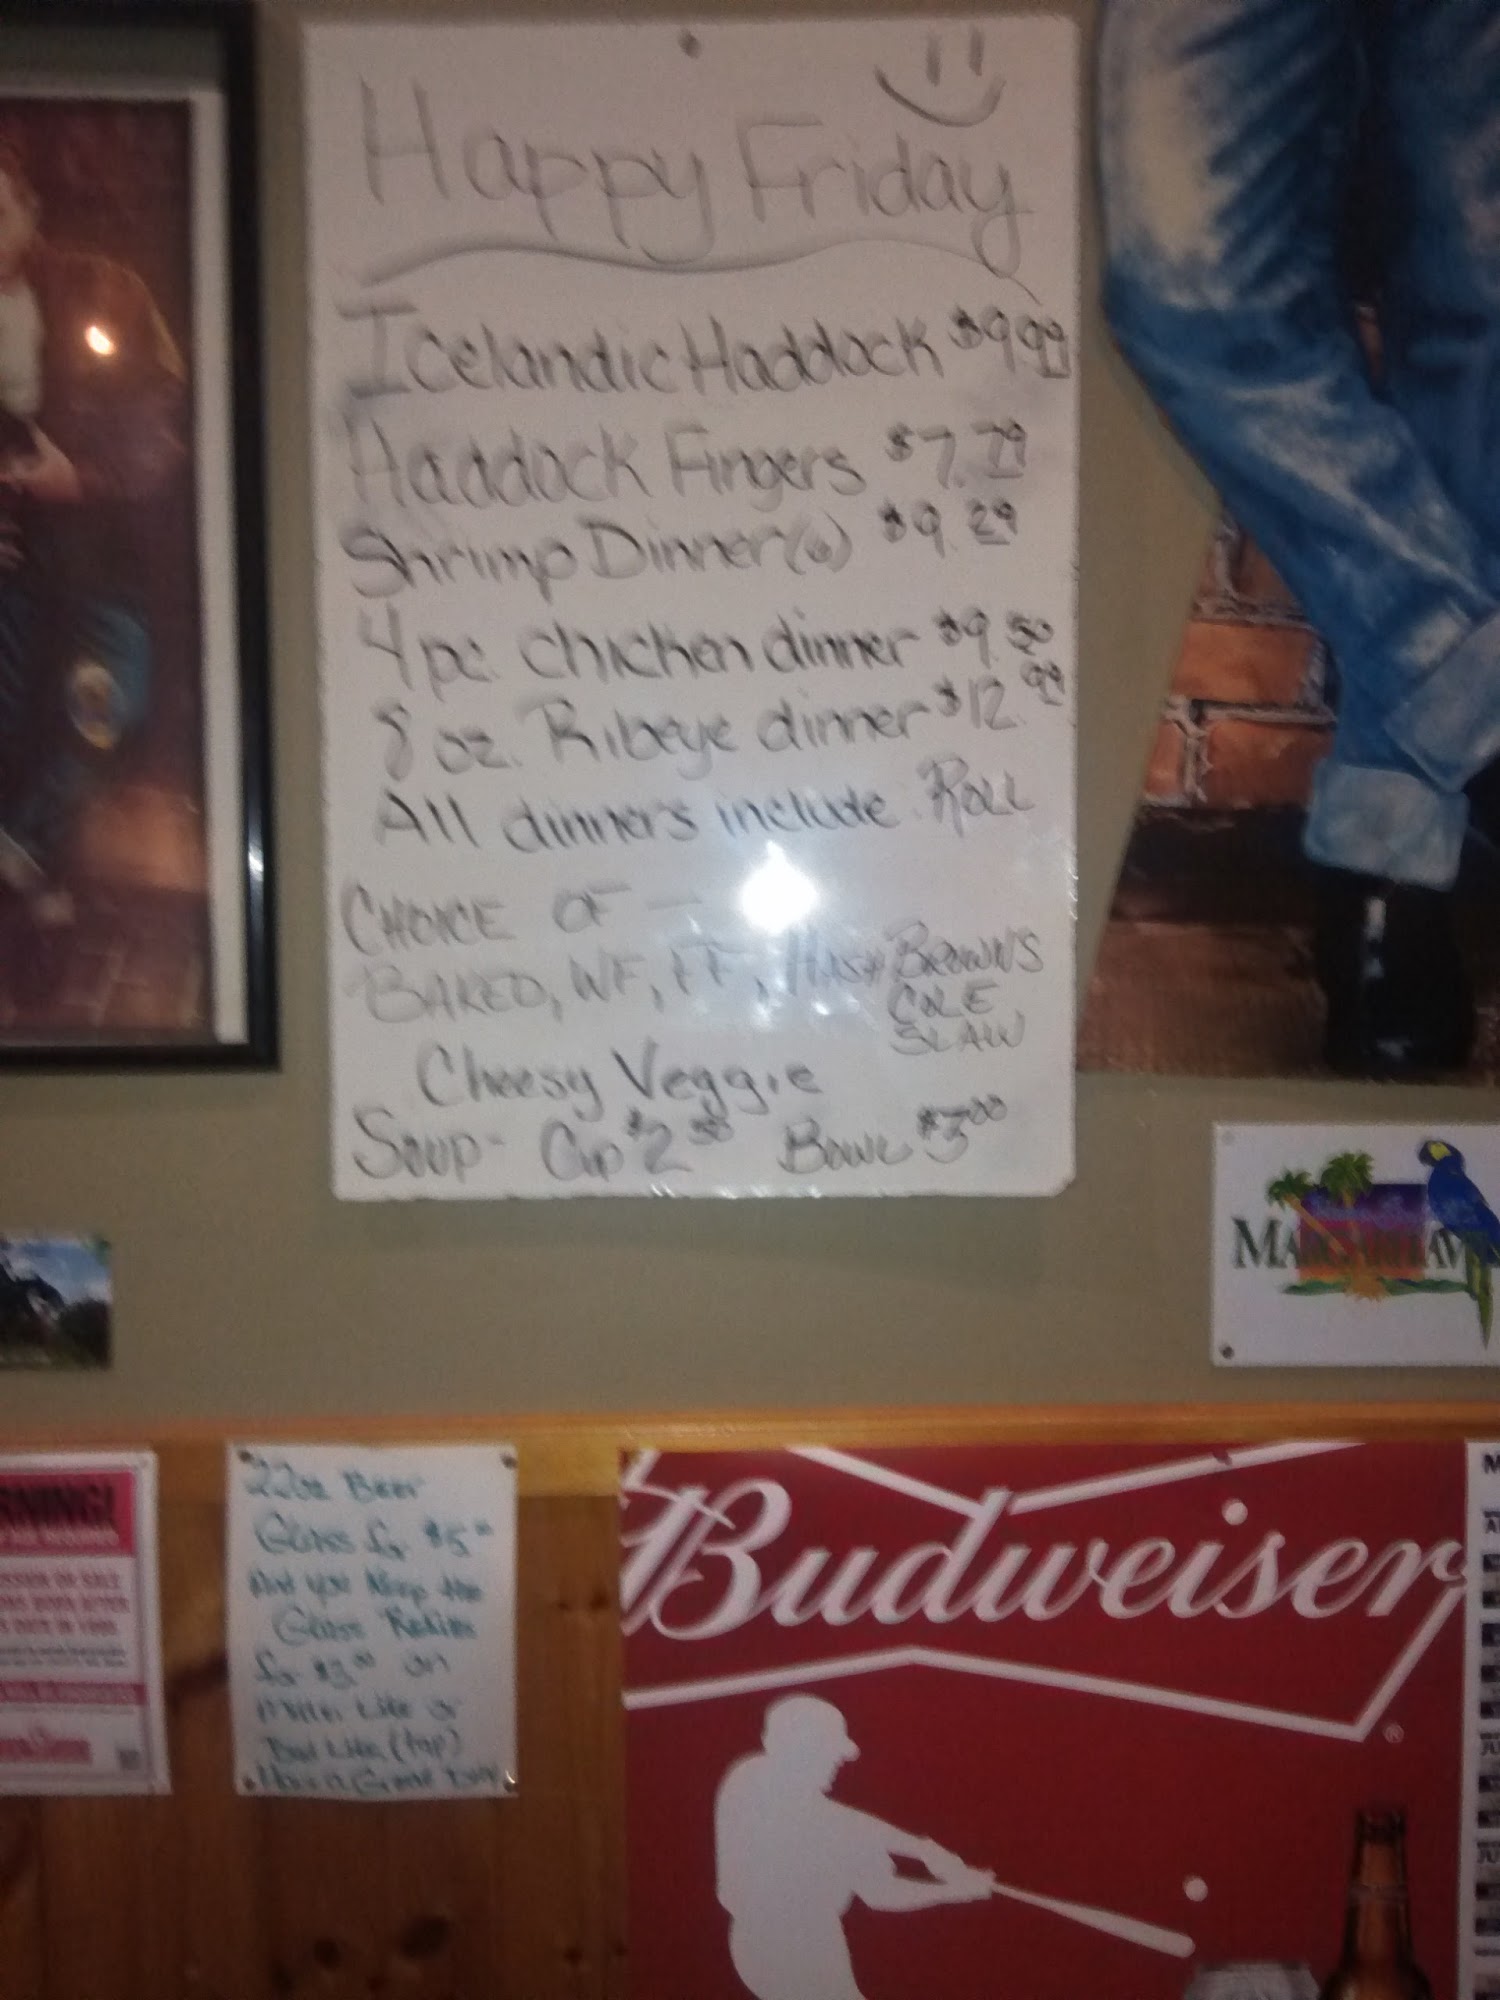 Happy Friday
Icelandic Haddock $9.99
Haddock Fingers $7.79
Shrimp Dinner (6) $9.29
4 pc. chicken dinner $9.50
8 oz. Ribeye dinner $12.99
All dinners include Roll
CHOICE OF —
BAKED, WF, FF, HASH BROWNS
COLE
SLAW
Cheesy Veggie
Soup - Cup $2.50 Bowl $3.00
22oz Beer
Glass for $5.00
And you keep the
Glass Refills
for $3.00 on
Miller Lite or
Bud Lite (tap)
Have a Great Day
Budweiser